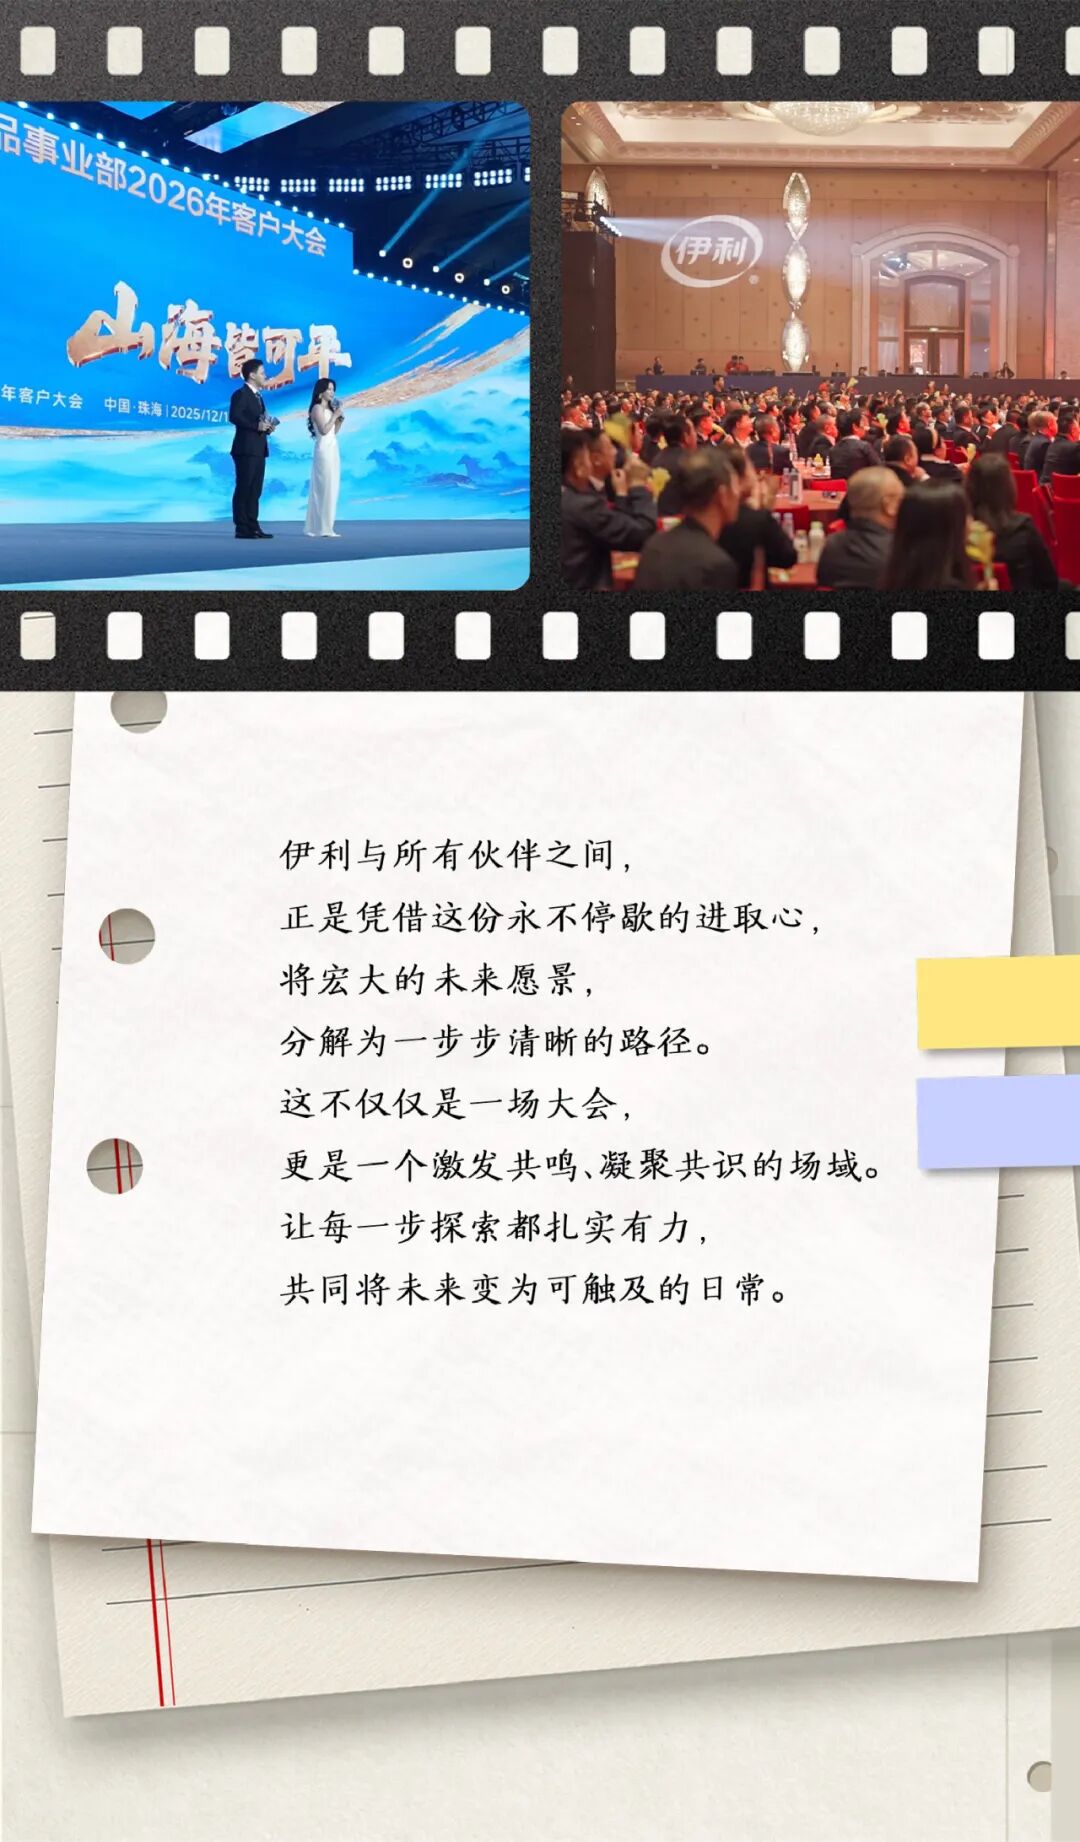 品事业部2026年客户大会
山海皆可平
年客户大会 中国·珠海 | 2025/12/1
伊利
伊利与所有伙伴之间，
正是凭借这份永不停歇的进取心，
将宏大的未来愿景，
分解为一步步清晰的路径。
这不仅仅是一场大会，
更是一个激发共鸣、凝聚共识的场域。
让每一步探索都扎实有力，
共同将未来变为可触及的日常。